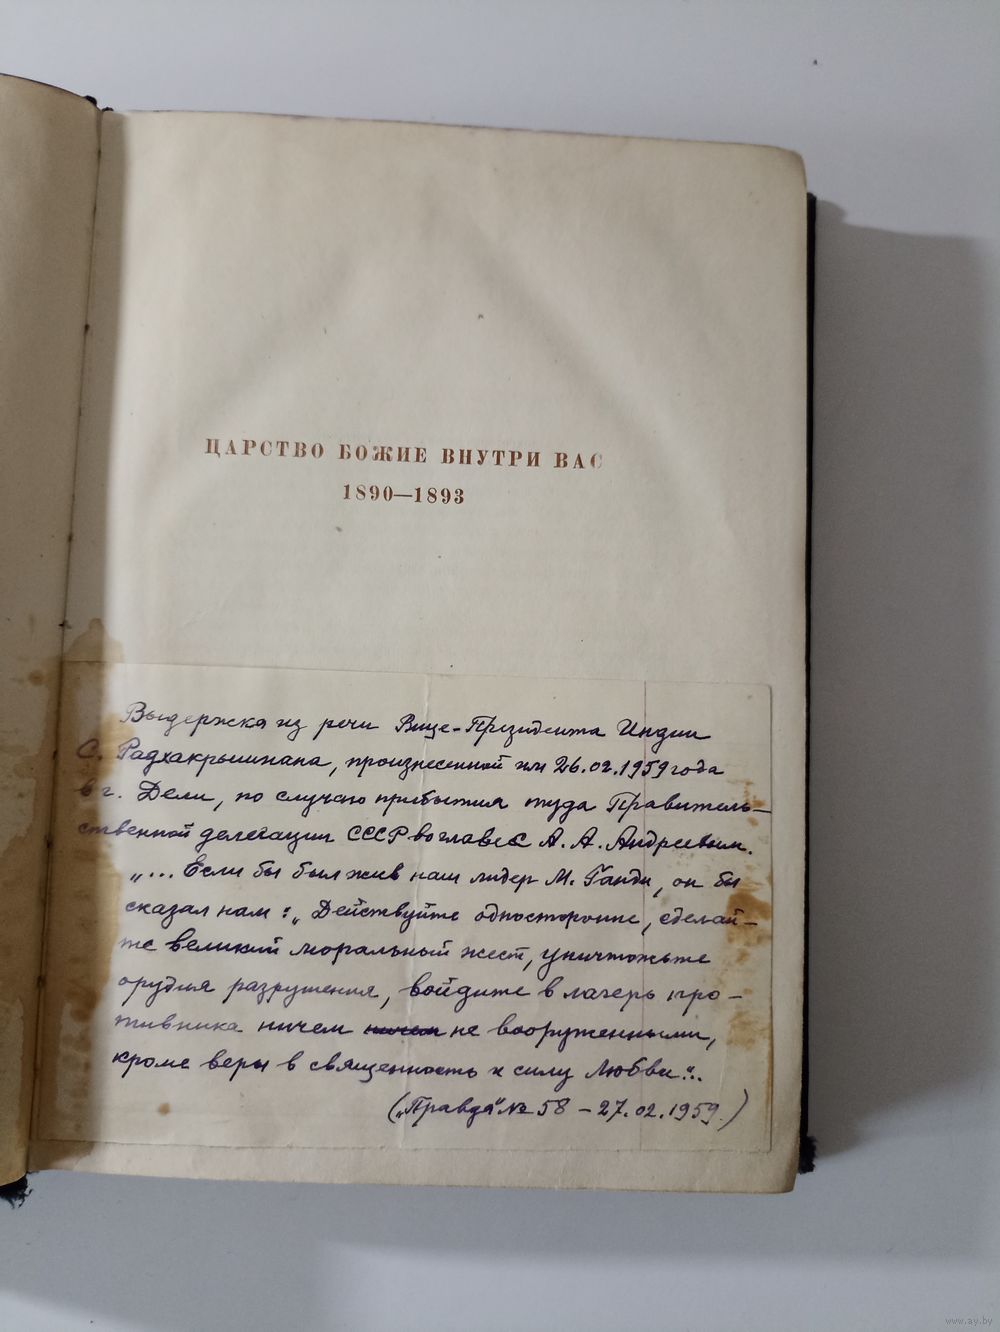 ЦАРСТВО БОЖИЕ ВНУТРИ ВАС
1890—1893
Выдержка из речи Вице-Президента Индии
С. Радхакришнана, произнесенной им 26.02.1959 года
в г. Дели, по случаю прибытия туда Правитель-
ственной делегации СССР во главе с А. А. Андреевым.
„... Если бы был жив наш лидер М. Ганди, он бы
сказал нам: „Действуйте односторонне, сделай-
те великий моральный жест, уничтожьте
орудия разрушения, войдите в лагерь про-
тивника ничем ничем не вооруженными,
кроме веры в священность и силу Любви"..
(„Правда" № 58 – 27.02.1959.)
www.ay.by